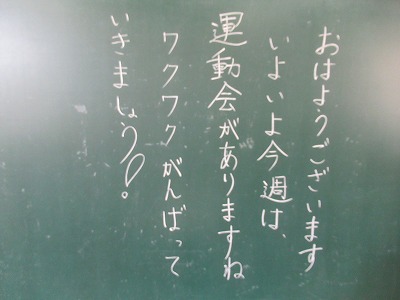 おはようございます
いよいよ今週は、
運動会がありますね
ワクワクがんばって
いきましょう!。